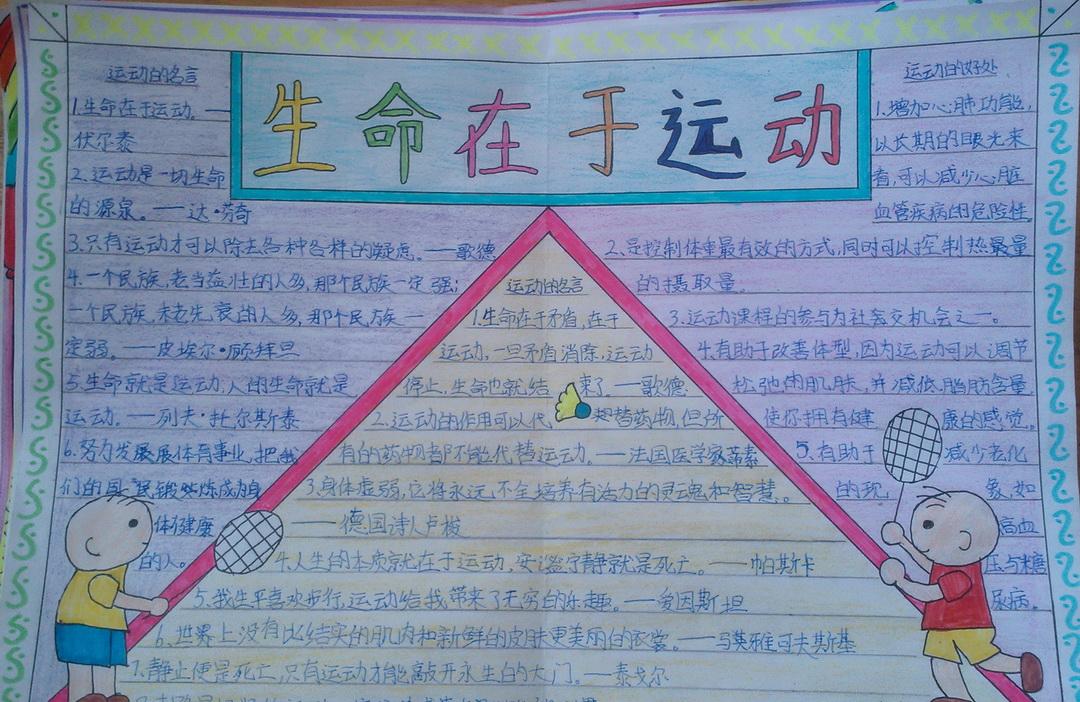 生命在于运动
运动的名言
1.生命在于运动。——
伏尔泰
2.运动是一切生命
的源泉。——达·芬奇
3.只有运动才可以除去各种各样的疑虑。——歌德
4.一个民族,老当益壮的人多,那个民族一定强;
一个民族,未老先衰的人多,那个民族一
定弱。——皮埃尔·顾拜旦
5.生命就是运动,人的生命就是
运动。——列夫·托尔斯泰
6.努力发展展体育事业,把我
们的国民锻炼成为身
体健康
的人。
运动的名言
1.生命在于矛盾,在于
运动,一旦矛盾消除,运动
停止,生命也就结束了。——歌德
2.运动的作用可以代替药物,但所
有的药物都不能代替运动。——法国医学家蒂素
3.身体虚弱,它将永远不会培养有活力的灵魂和智慧。
——德国诗人卢梭
4.人生的本质就在于运动,安谧宁静就是死亡。——帕斯卡
5.我生平喜欢步行,运动给我带来了无穷的乐趣。——爱因斯坦
6.世界上没有比结实的肌肉和新鲜的皮肤更美丽的衣裳。——马雅可夫斯基
7.静止便是死亡,只有运动才能敲开永生的大门。——泰戈尔
运动的好处
1.增加心肺功能,
以长期的眼光来
看,可以减少心脏
血管疾病的危险性
2.是控制体重最有效的方式,同时可以控制热量
的摄取量。
3.运动课程的参与为社会交机会之一。
4.有助于改善体型,因为运动可以调节
松弛的肌肤,并减低脂肪含量,
使你拥有健康的感觉。
5.有助于减少老化
的现象,如
高血
压与糖
尿病。